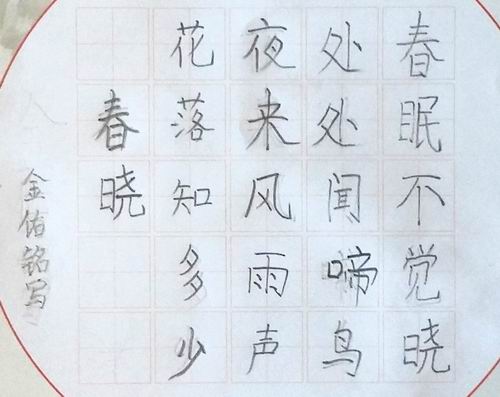 春眠不觉晓
处处闻啼鸟
夜来风雨声
花落知多少
春晓
金佑铭写